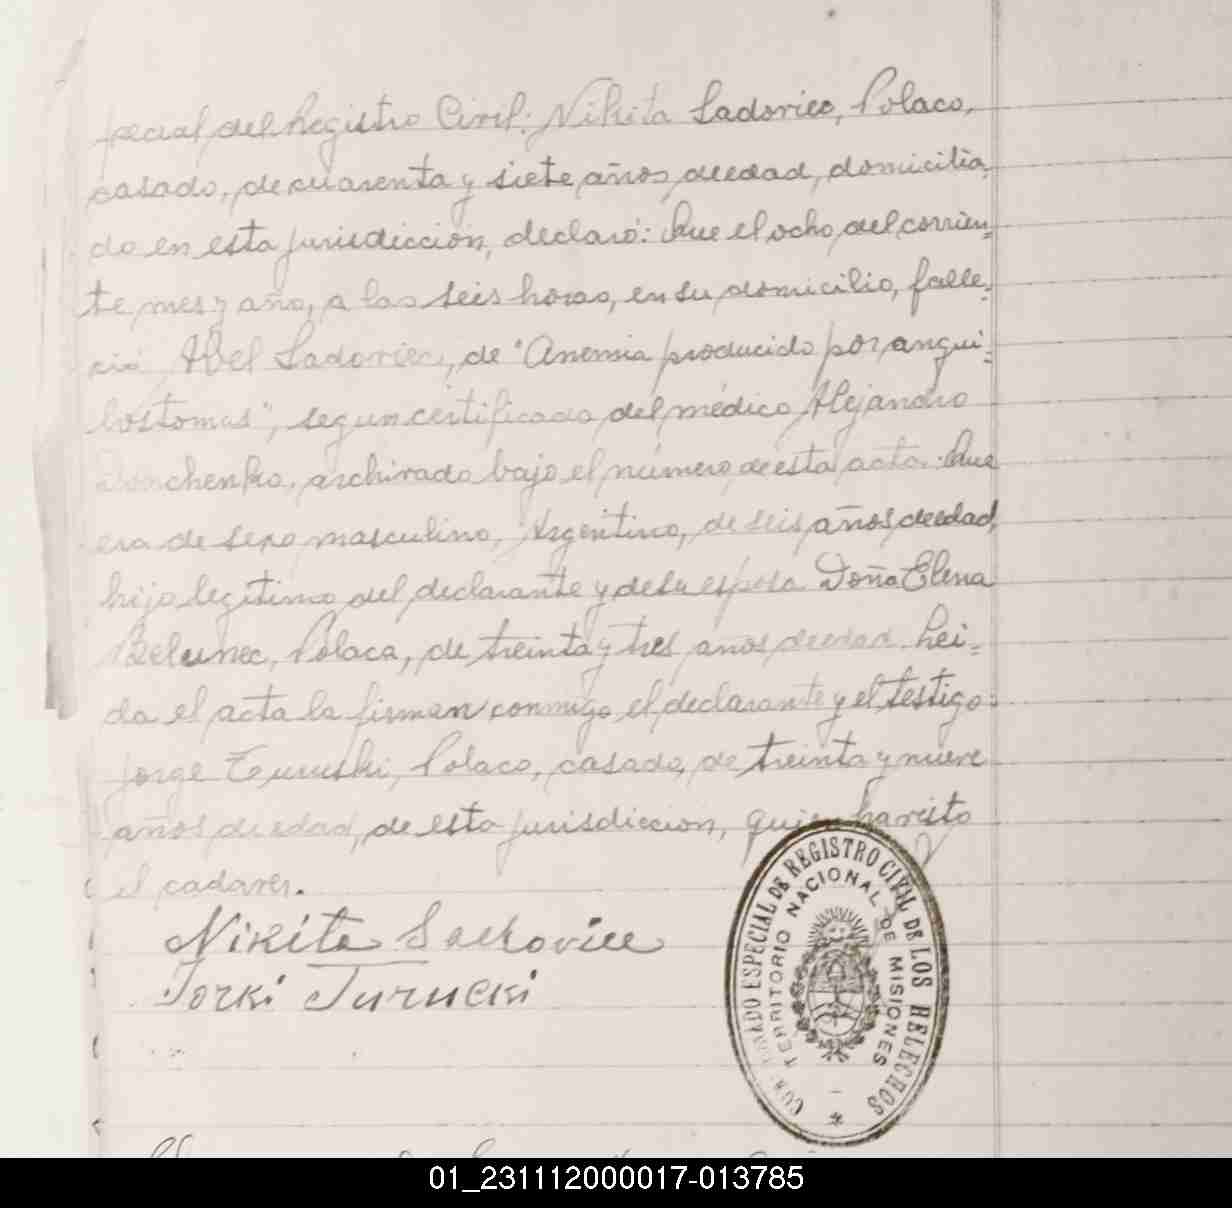 pecial del Registro Civil: Nikita Sadovicc, Polaco,
casado, de cuarenta y siete años de edad, domicilia
do en esta jurisdiccion, declaró: Que el ocho del corrien=
te mes y año, a las seis horas, en su domicilio, falle=
ció Abel Sadovicc, de "Anemia producido por anqui=
lostomas", segun certificado del médico Alejandro
archivado bajo el número de esta acta. Que
era de sexo masculino, Argentino, de seis años de edad,
hijo legitimo del declarante y de su esposa Doña Elena
Belunec, Polaca, de treinta y tres años de edad. Lei=
da el acta la firman conmigo el declarante y el testigo:
Jorge Polaco, casado, de treinta y nueve
años de edad, de esta jurisdiccion, quien ha visto
el cadaver.
Nikita
Jorki Turucki
REGISTRO CIVIL DE LOS HELECHOS
TERRITORIO NACIONAL DE MISIONES
01_231112000017-013785